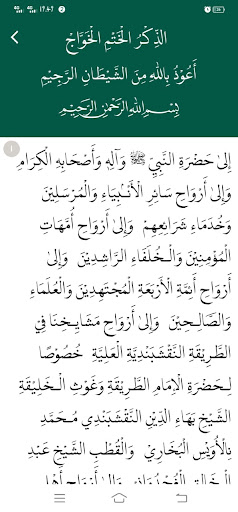 17.47
الذِّكْرُ الْخَتْمِ الْخَوَّاجْ
أَعُوْذُ بِاللهِ مِنَ الشَّيْطَانِ الرَّجِيْمِ
بِسْمِ اللهِ الرَّحْمٰنِ الرَّحِيْمِ
١
إِلىَ حَضْرَةِ النَّبِيِّ ﷺ وَآلِهِ وَأَصْحَابِهِ الْكِرَامِ
وَإِلىَ أَرْوَاحِ سَائِرِ الْأَنْبِيَاءِ وَالْمُرْسَلِيْنَ
وَخُدَمَاءِ شَرَائِعِهِمْ وَإِلىَ أَرْوَاحِ أُمَّهَاتِ
الْمُؤْمِنِيْنَ وَالْخُلَفَاءِ الرَّاشِدِيْنَ وَإِلىَ
أَرْوَاحِ أَئِمَّةِ الْأَرْبَعَةِ الْمُجْتَهِدِيْنَ وَالْعُلَمَاءِ
وَالصَّالِحِيْنَ وَإِلىَ أَرْوَاحِ مَشَايِخِنَا فِي
الطَّرِيْقَةِ النَّقْشَبَنْدِيَةِ الْعَلِيَّةِ خُصُوْصًا
لِحَضْرَةِ الْاِمَامِ الطَّرِيْقَةِ وَغَوْثِ الْخَلِيْقَةِ
الشَّيْخِ بَهَاءِ الدِّيْنِ النَّقْشَبَنْدِي مُحَمَّدِ
نِالْأُوَيْسِ الْبُخَارِيْ وَالْقُطْبِ الشَّيْخِ عَبْدِ
الْخَالِقِ الْغُجْدُوَانِيْ وَإِلىَ أَرْوَاحِ أَهْلِ